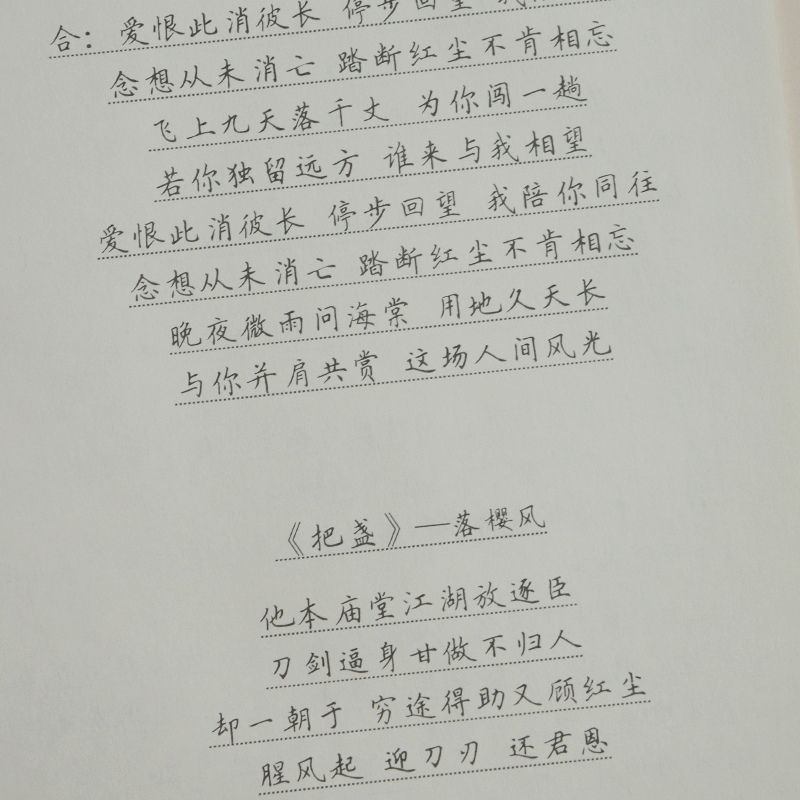 合：爱恨此消彼长 停步回望
念想从未消亡 踏断红尘不肯相忘
飞上九天落千丈 为你闯一趟
若你独留远方 谁来与我相望
爱恨此消彼长 停步回望 我陪你同往
念想从未消亡 踏断红尘不肯相忘
晚夜微雨问海棠 用地久天长
与你并肩共赏 这场人间风光
《把盏》——落樱风
他本庙堂江湖放逐臣
刀剑逼身甘做不归人
却一朝于 穷途得助又顾红尘
腥风起 迎刀刃 还君恩